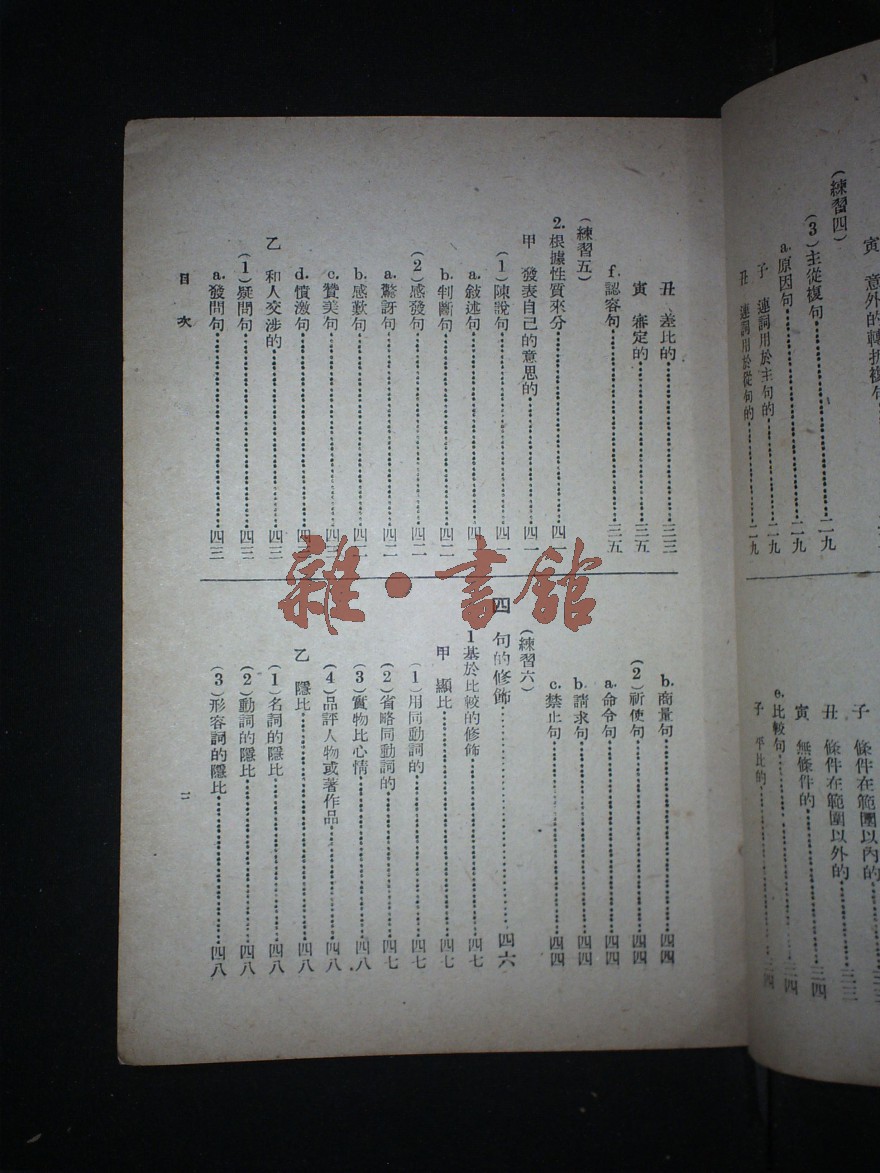 寅 意外的轉折複句
(練習四)
(3)主從複句……二九
a.原因句……二九
子 連詞用於主句的……二九
丑 連詞用於從句的……二九
子 條件在範圍以內的……三三
丑 條件在範圍以外的……三三
寅 無條件的……三四
e.比較句……三四
子 平比的……三四
丑 差比的……三三
寅 審定的……三五
f.認容句……三五
(練習五)
2.根據性質來分……四一
甲 發表自己的意思的……四一
(1)陳說句……四一
a.敍述句……四一
b.判斷句……四二
(2)感發句……四二
a.驚訝句……四二
b.感歎句……四二
c.贊美句……四三
d.憤激句……四三
乙 和人交涉的……四三
(1)疑問句……四三
a.發問句……四三
b.商量句……四四
(2)祈使句……四四
a.命令句……四四
b.請求句……四四
c.禁止句……四四
(練習六)
四 句的修飾……四六
1基於比較的修飾……四七
甲 顯比……四七
(1)用同動詞的……四七
(2)省略同動詞的……四七
(3)實物比心情……四八
(4)品評人物或著作品……四八
乙 隱比……四八
(1)名詞的隱比……四八
(2)動詞的隱比……四八
(3)形容詞的隱比……四八
目次
二
雜·書館